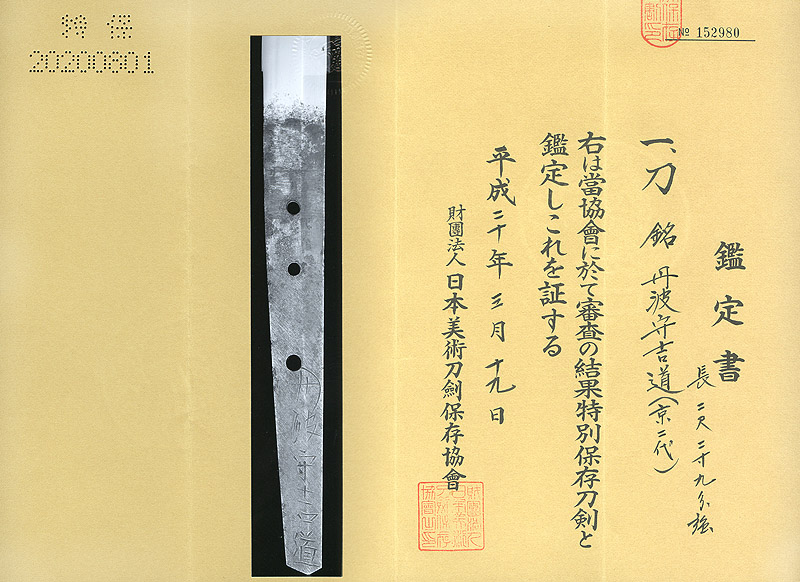 № 152980
鑑定書
長 二尺二寸九分強
一、刀 銘 丹波守吉道(京二代)
右は當協會に於て審査の結果特別保存刀剣と
鑑定しこれを証する
平成二十年三月十九日
財團法人 日本美術刀劍保存協會
丹波守吉道
特保
20200801